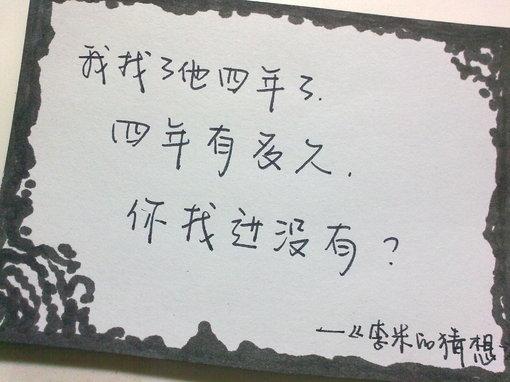 我找了他四年了.
四年有多久.
你找过没有?
——《李米的猜想